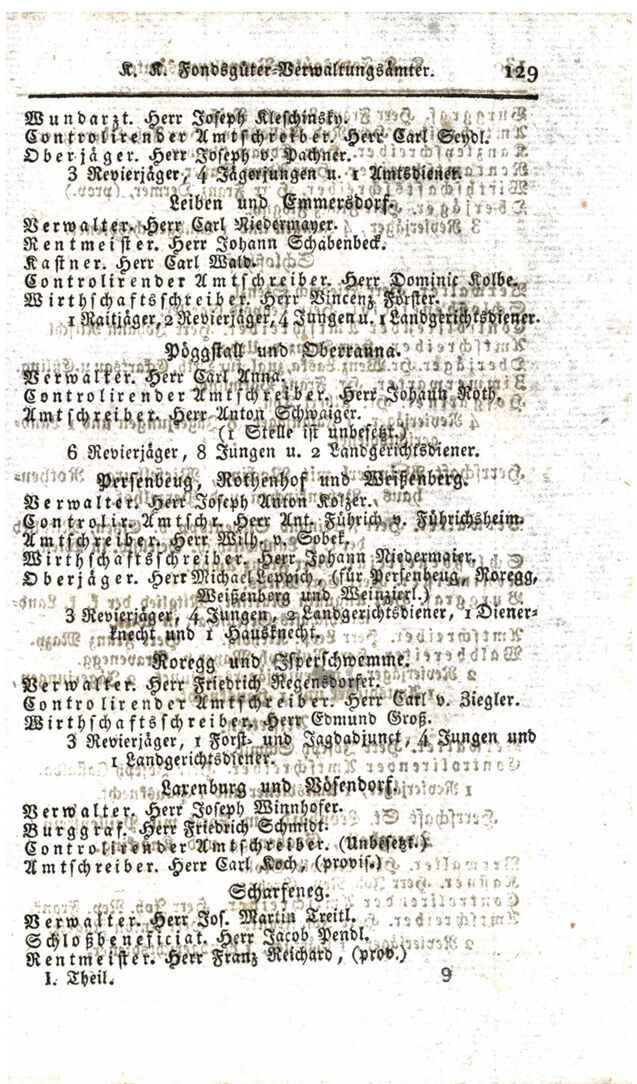 K. K. Fondsgüter-Verwaltungsämter. 129
Wundarzt. Herr Joseph Kleschinsky.
Controlirender Amtschreiber. Herr Carl Seydl.
Oberjäger. Herr Joseph v. Pachner.
3 Revierjäger, 4 Jägerjungen u. 1 Amtsdiener.
Leiben und Emmersdorf.
Verwalter. Herr Carl Niedermayer.
Rentmeister. Herr Johann Schabenbeck.
Kastner. Herr Carl Wald.
Controlirender Amtschreiber. Herr Dominic Kolbe.
Wirthschaftsschreiber. Herr Vincenz Förster.
1 Raitjäger, 2 Revierjäger, 4 Jungen u. 1 Landgerichtsdiener.
Pöggstall und Oberranna.
Verwalter. Herr Carl Anna.
Controlirender Amtschreiber. Herr Johann Roth.
Amtschreiber. Herr Anton Schwaiger.
(1 Stelle ist unbesetzt.)
6 Revierjäger, 8 Jungen u. 2 Landgerichtsdiener.
Persenbeug, Rothenhof und Weißenberg.
Verwalter. Herr Joseph Anton Kolzer.
Controlir. Amtschr. Herr Ant. Führich v. Führichsheim.
Amtschreiber. Herr Wilh. v. Sobek.
Wirthschaftsschreiber. Herr Johann Niedermaier.
Oberjäger. Herr Michael Leppich, (für Persenbeug, Roregg,
Weißenberg und Weinzierl.)
3 Revierjäger, 4 Jungen, 2 Landgerichtsdiener, 1 Diener-
knecht und 1 Hausknecht.
Roregg und Isperschwemme.
Verwalter. Herr Friedrich Regensdorfer.
Controlirender Amtschreiber. Herr Carl v. Ziegler.
Wirthschaftsschreiber. Herr Edmund Groß.
3 Revierjäger, 1 Forst- und Jagdadjunct, 4 Jungen und
1 Landgerichtsdiener.
Laxenburg und Vösendorf.
Verwalter. Herr Joseph Winnhofer.
Burggraf. Herr Friedrich Schmidt.
Controlirender Amtschreiber. (Unbesetzt.)
Amtschreiber. Herr Carl Koch, (provis.)
Scharfeneg.
Verwalter. Herr Jos. Martin Treitl.
Schloßbeneficiat. Herr Jacob Pendl.
Rentmeister. Herr Franz Reichard, (prov.)
I. Theil. 9